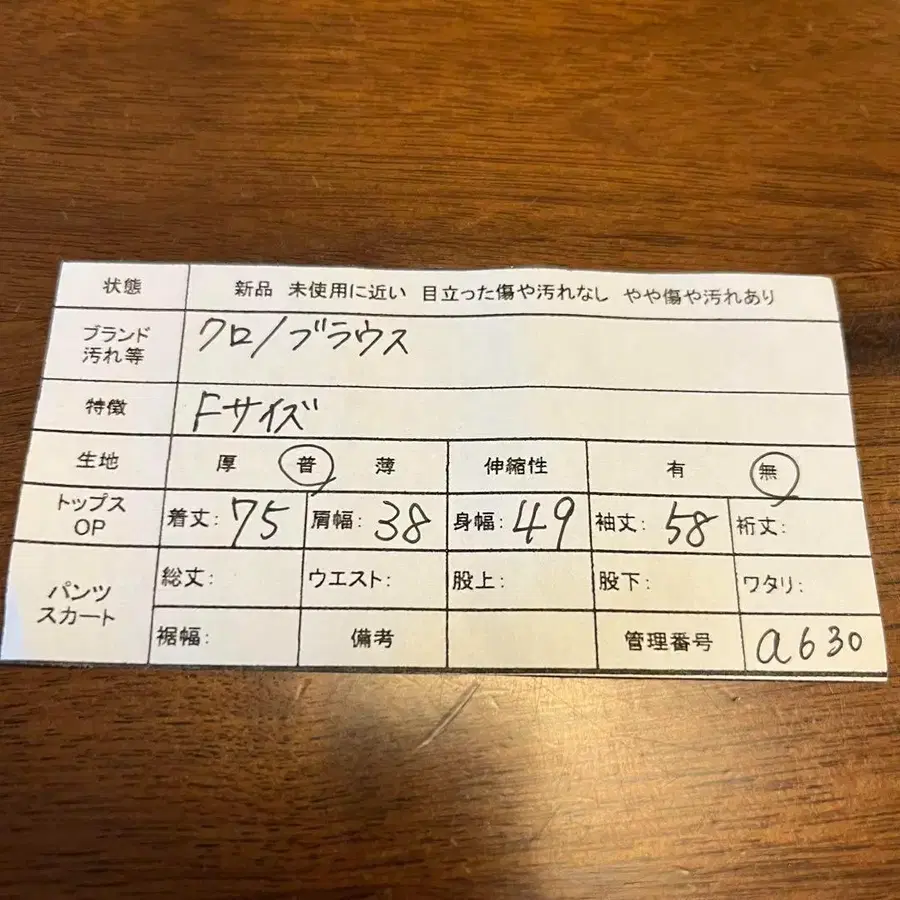 状態 新品 未使用に近い 目立った傷や汚れなし やや傷や汚れあり
ブランド 汚れ等 クロ/ブラウス
特徴 Fサイズ
生地 厚 普 薄 伸縮性 有 無
トップス OP 着丈: 75 肩幅: 38 身幅: 49 袖丈: 58 裄丈:
パンツ スカート 総丈: ウエスト: 股上: 股下: ワタリ:
裾幅: 備考 管理番号 a630